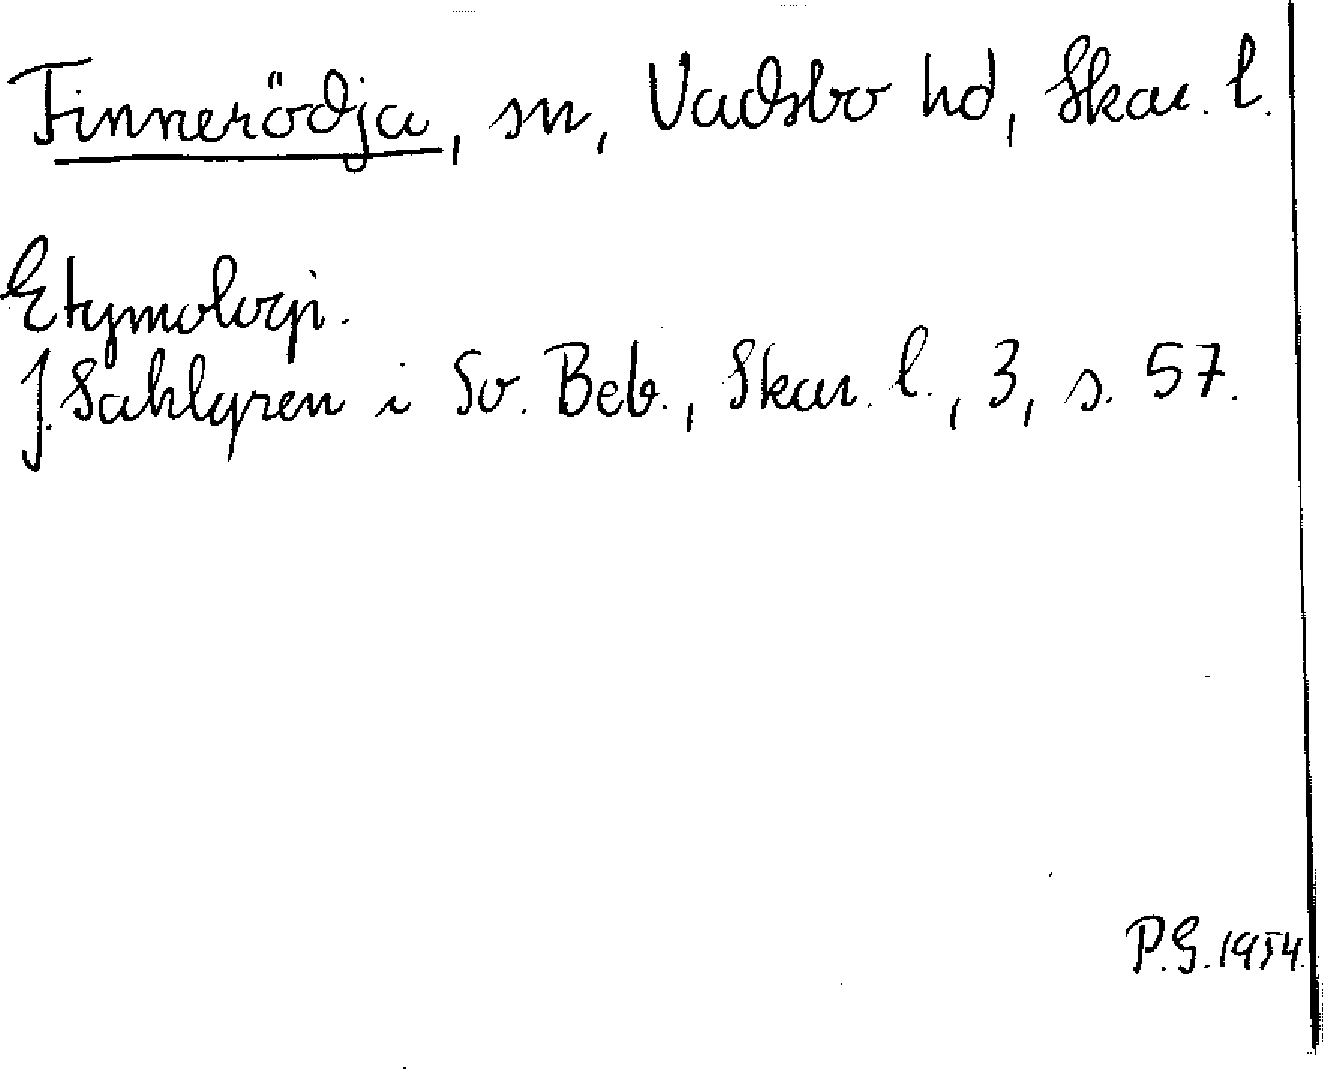 Finnerödja, sn, Vadsbo hd, Skar. l.
Etymologi.
J. Sahlgren i Sv. Beb., Skar. l., 3, s. 57.
P.G. 1954.